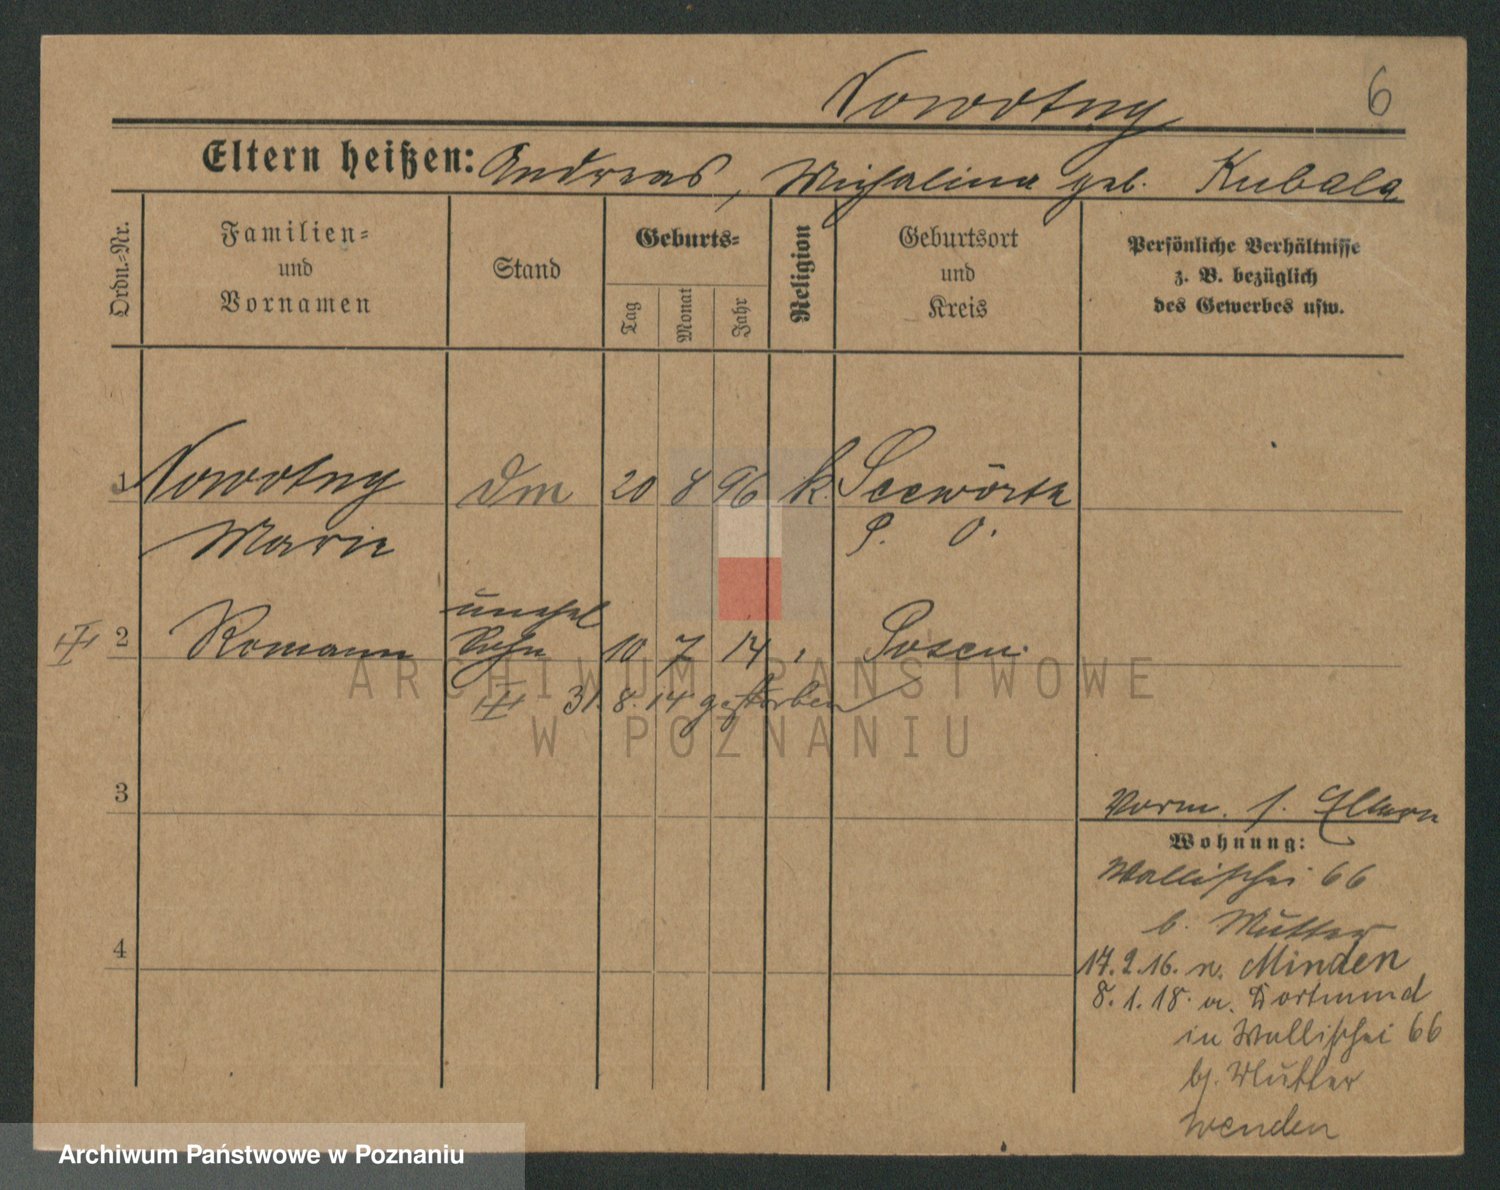 Nowotny 6
Eltern heißen: Andreas, Michalina geb. Kubala
Ordn.-Nr.
Familien-
und
Vornamen
Stand
Geburts-
Tag
Monat
Jahr
Religion
Geburtsort
und
Kreis
Persönliche Verhältnisse
z. B. bezüglich
des Gewerbes usw.
1 Nowotny Dm 20 8 96 k. Seewörth
Marie P. O.
unehel
2 Romann Sohn 10 7 14 Posen.
31. 8. 14 gestorben
3
4
Vorm. s. Eltern
Wohnung:
Wallischei 66
b. Mutter
17.2.16. n. Minden
8.1.18. a. Dortmund
in Wallischei 66
bj. Mutter
wenden
ARCHIWUM PAŃSTWOWE
W POZNANIU
Archiwum Państwowe w Poznaniu